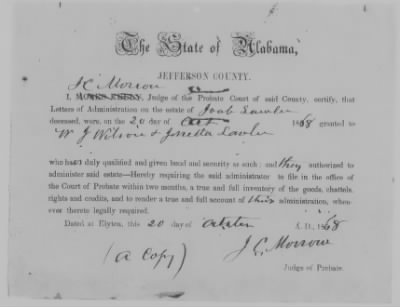 The State of Alabama,
JEFFERSON COUNTY.
J C Morrow
I, MOSES KELLY, Judge of the Probate Court of said County, certify, that
Letters of Administration on the estate of Joab Lawler
deceased, were, on the 20 day of Oct 1868 granted to
W J Wilson & Lawler
who has duly qualified and given bond and security as such: and they authorized to
administer said estate—Hereby requiring the said administrator to file in the office of
the Court of Probate within two months, a true and full inventory of the goods, chattels,
rights and credits, and to render a true and full account of their administration, when-
ever thereto legally required.
Dated at Elyton, this 20 day of October A. D., 1868
(A Copy) J C Morrow
Judge of Probate.